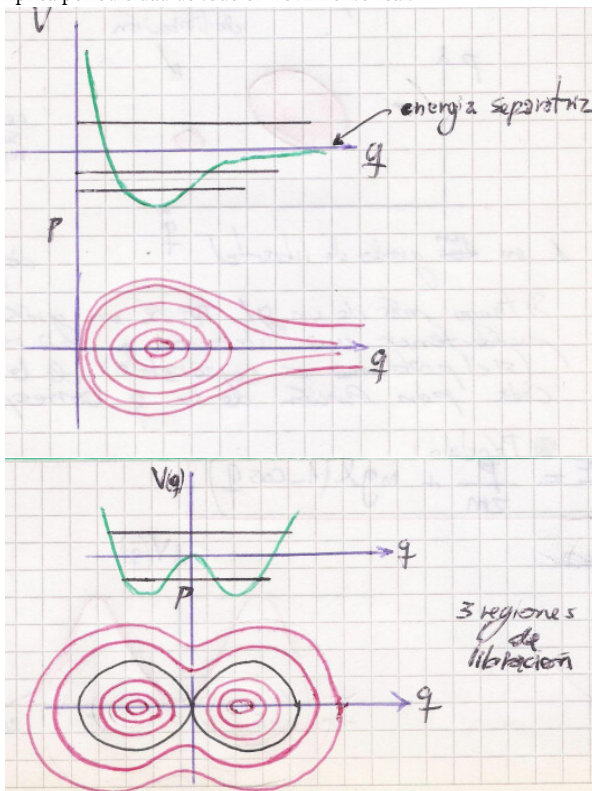 V
energía separatriz
q
P
q
V(q)
q
P
3 regiones
de
libración
q